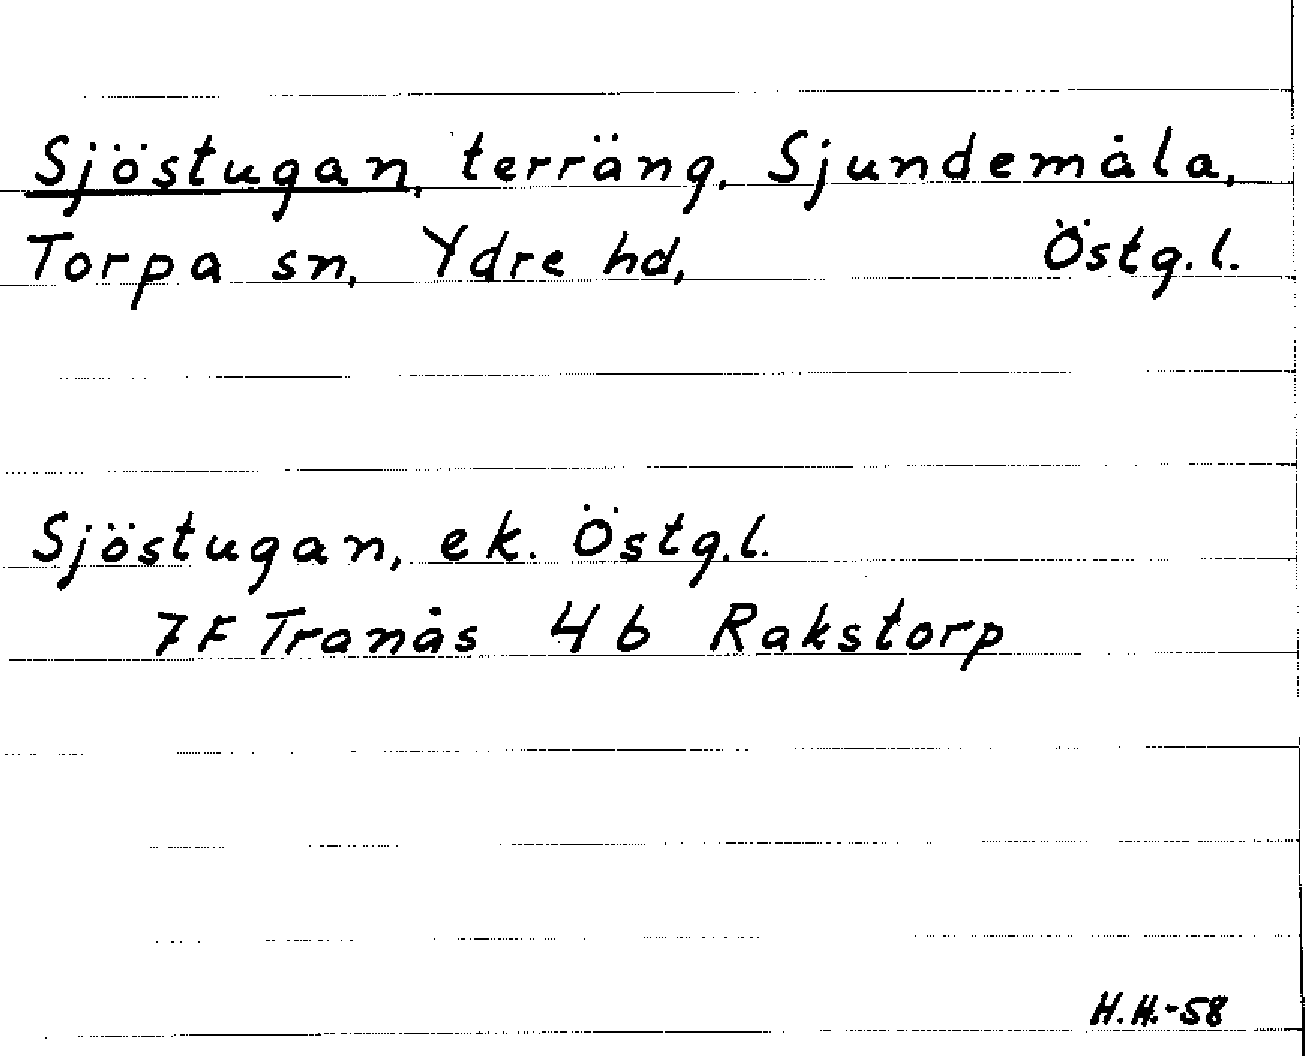 Sjöstugan, terräng, Sjundemåla,
Torpa sn, Ydre hd, Östg.l.
Sjöstugan, ek. Östg.l.
7F Tranås 4b Rakstorp
H.H.-58